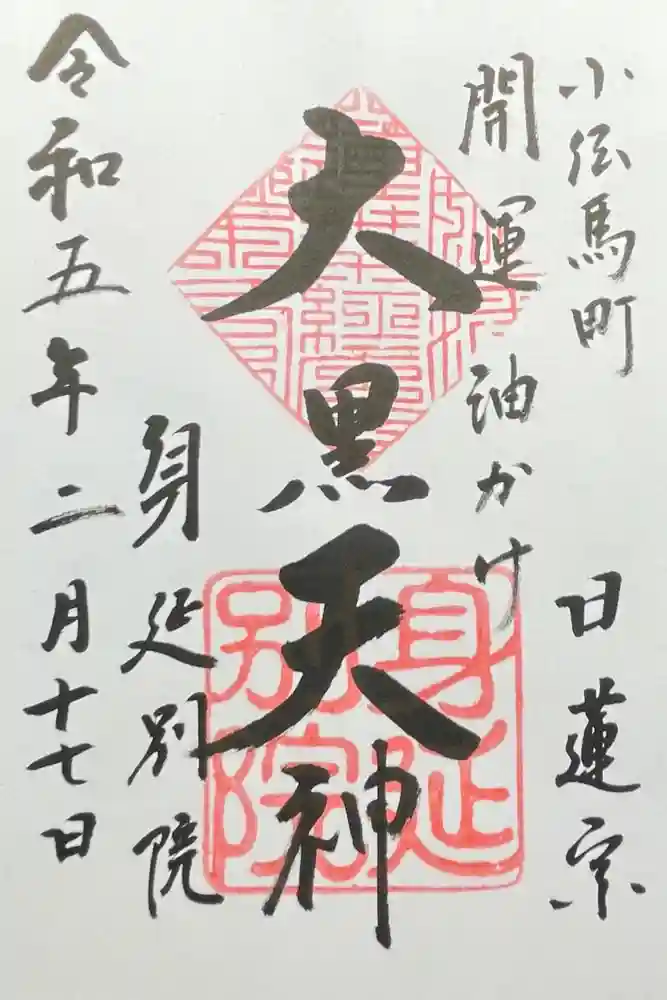 小伝馬町
日蓮宗
開運油かけ
大黒天神
身延別院
令和五年二月十七日
身延別院